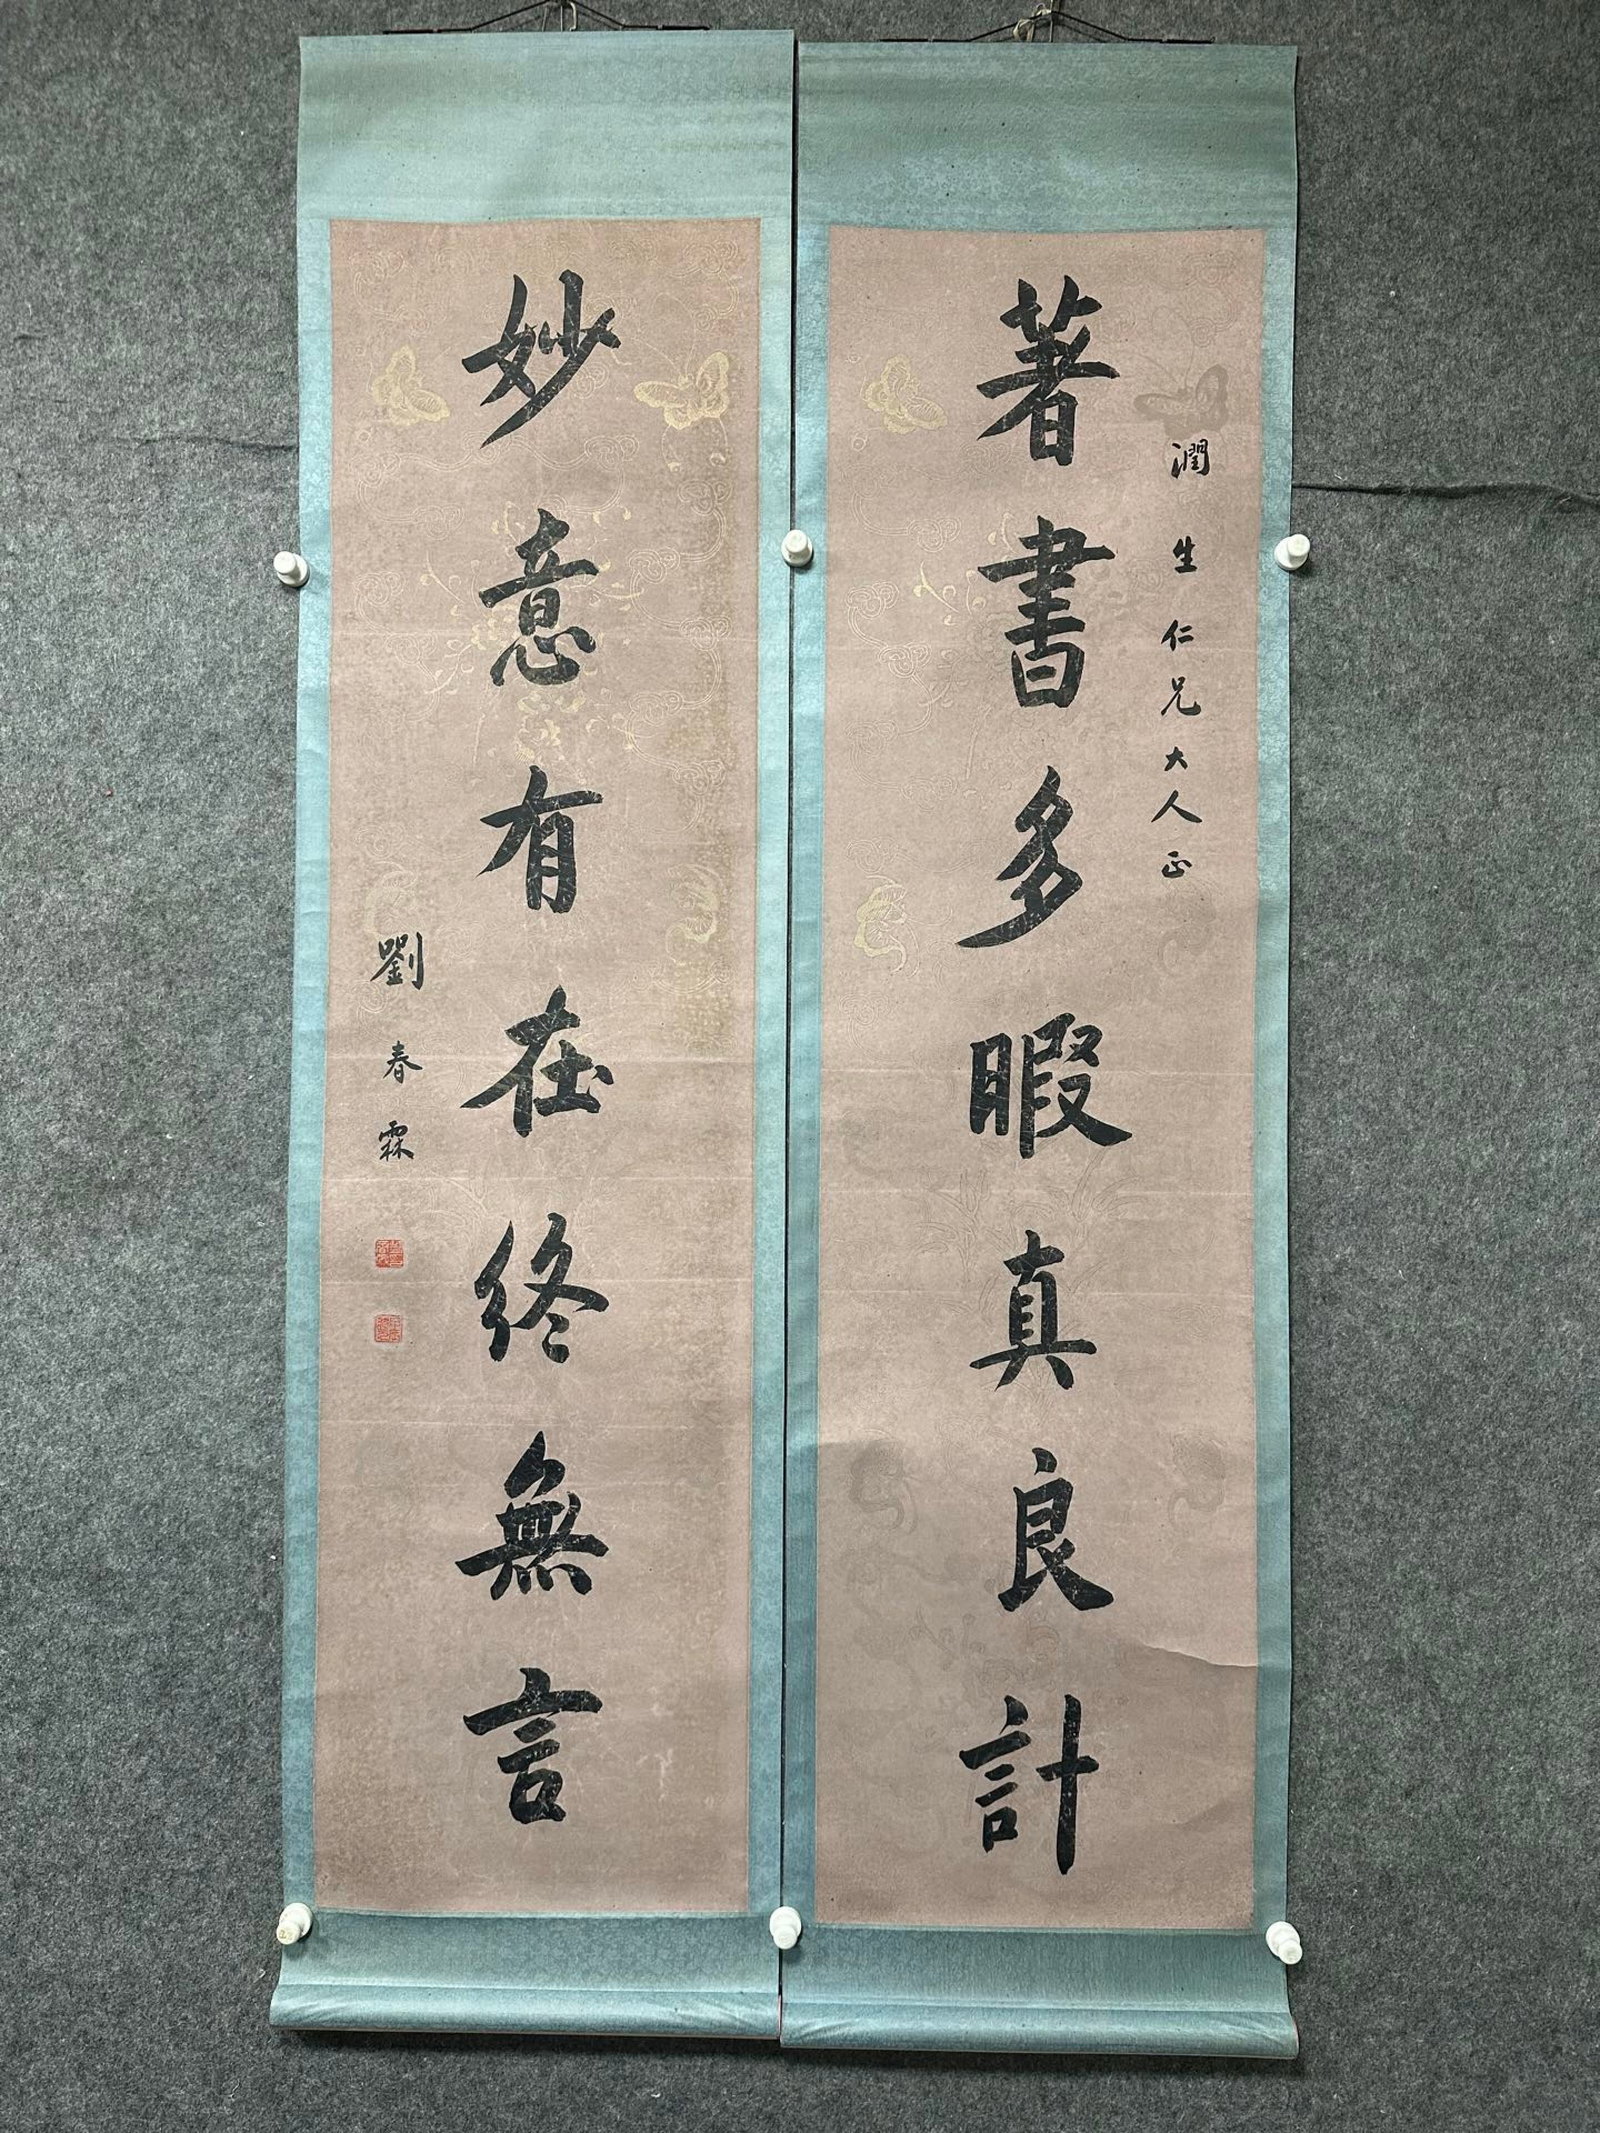 潤生仁兄大人正
著書多暇真良計
妙意有在終無言
劉春霖